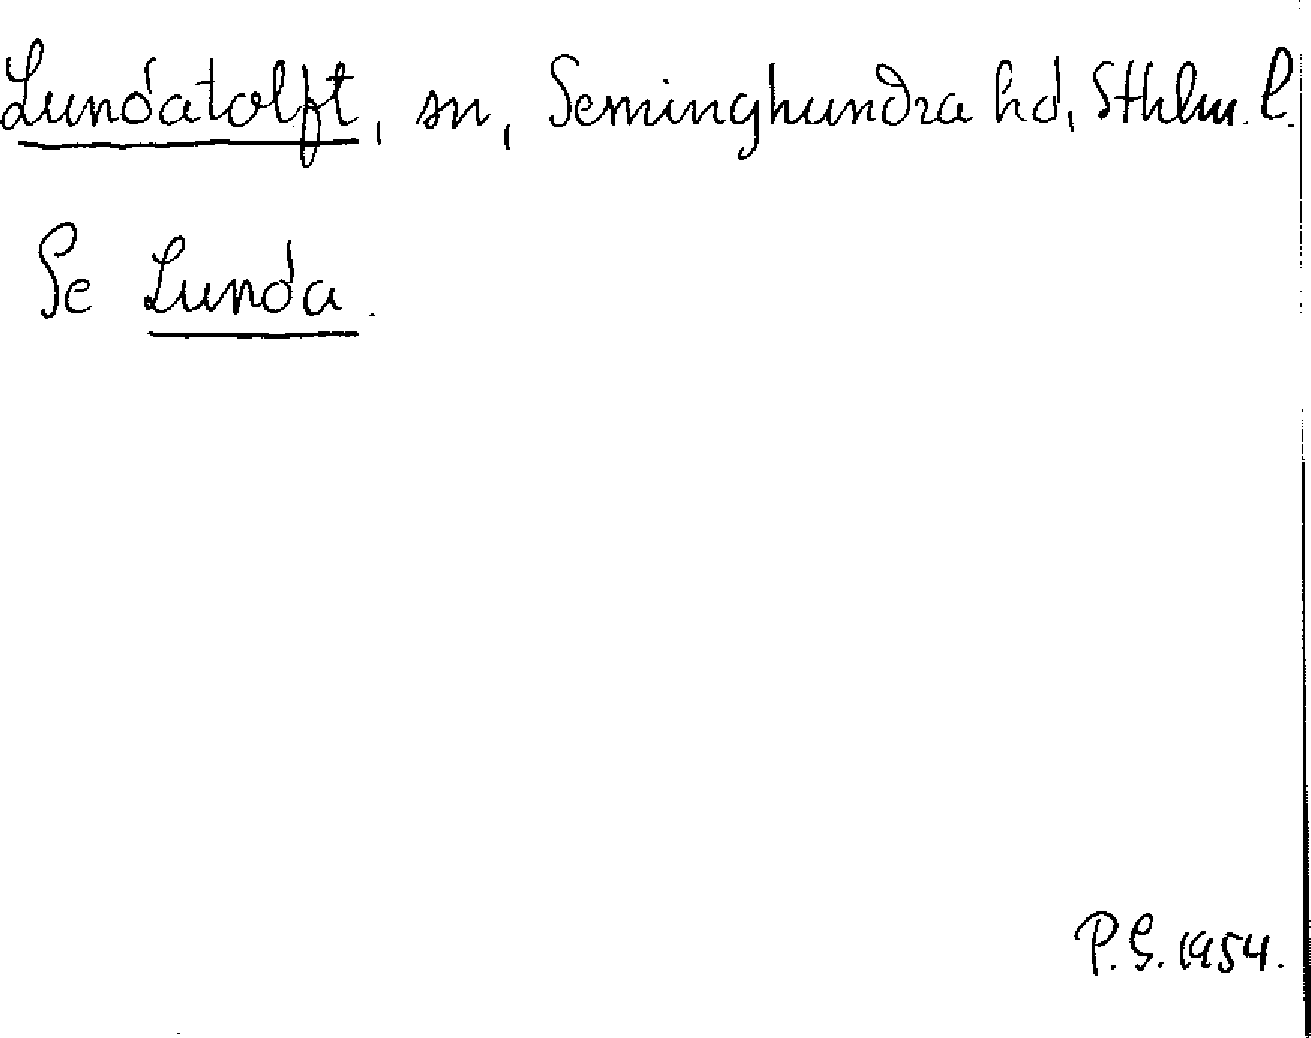 Lundatolft, sn, Seminghundra hd, Sthlm. l.
Se Lunda.
P.S. 1954.